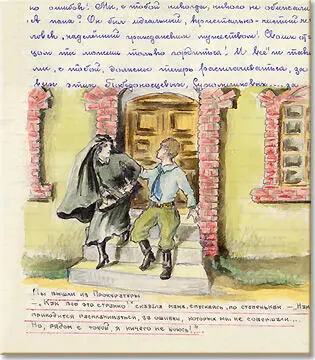 но ошибок! Мы, с тобой никогда, никого не обижали.
А папа? Он был идеальный, кристально-чистый че-
ловек, наделённый гражданским мужеством! Своим от-
цом ты можешь только гордиться! И всё таки
мы, с тобой, должны теперь расплачиваться, за
вин этих Победоносцевых, за
Мы вышли из Прокуратуры
— „Как всё это странно" сказала мама, спускаясь, по ступенькам — „Нам
приходится расплачиваться, за ошибки, которых мы не совершали....
Но, рядом с тобой, я ничего не боюсь!"